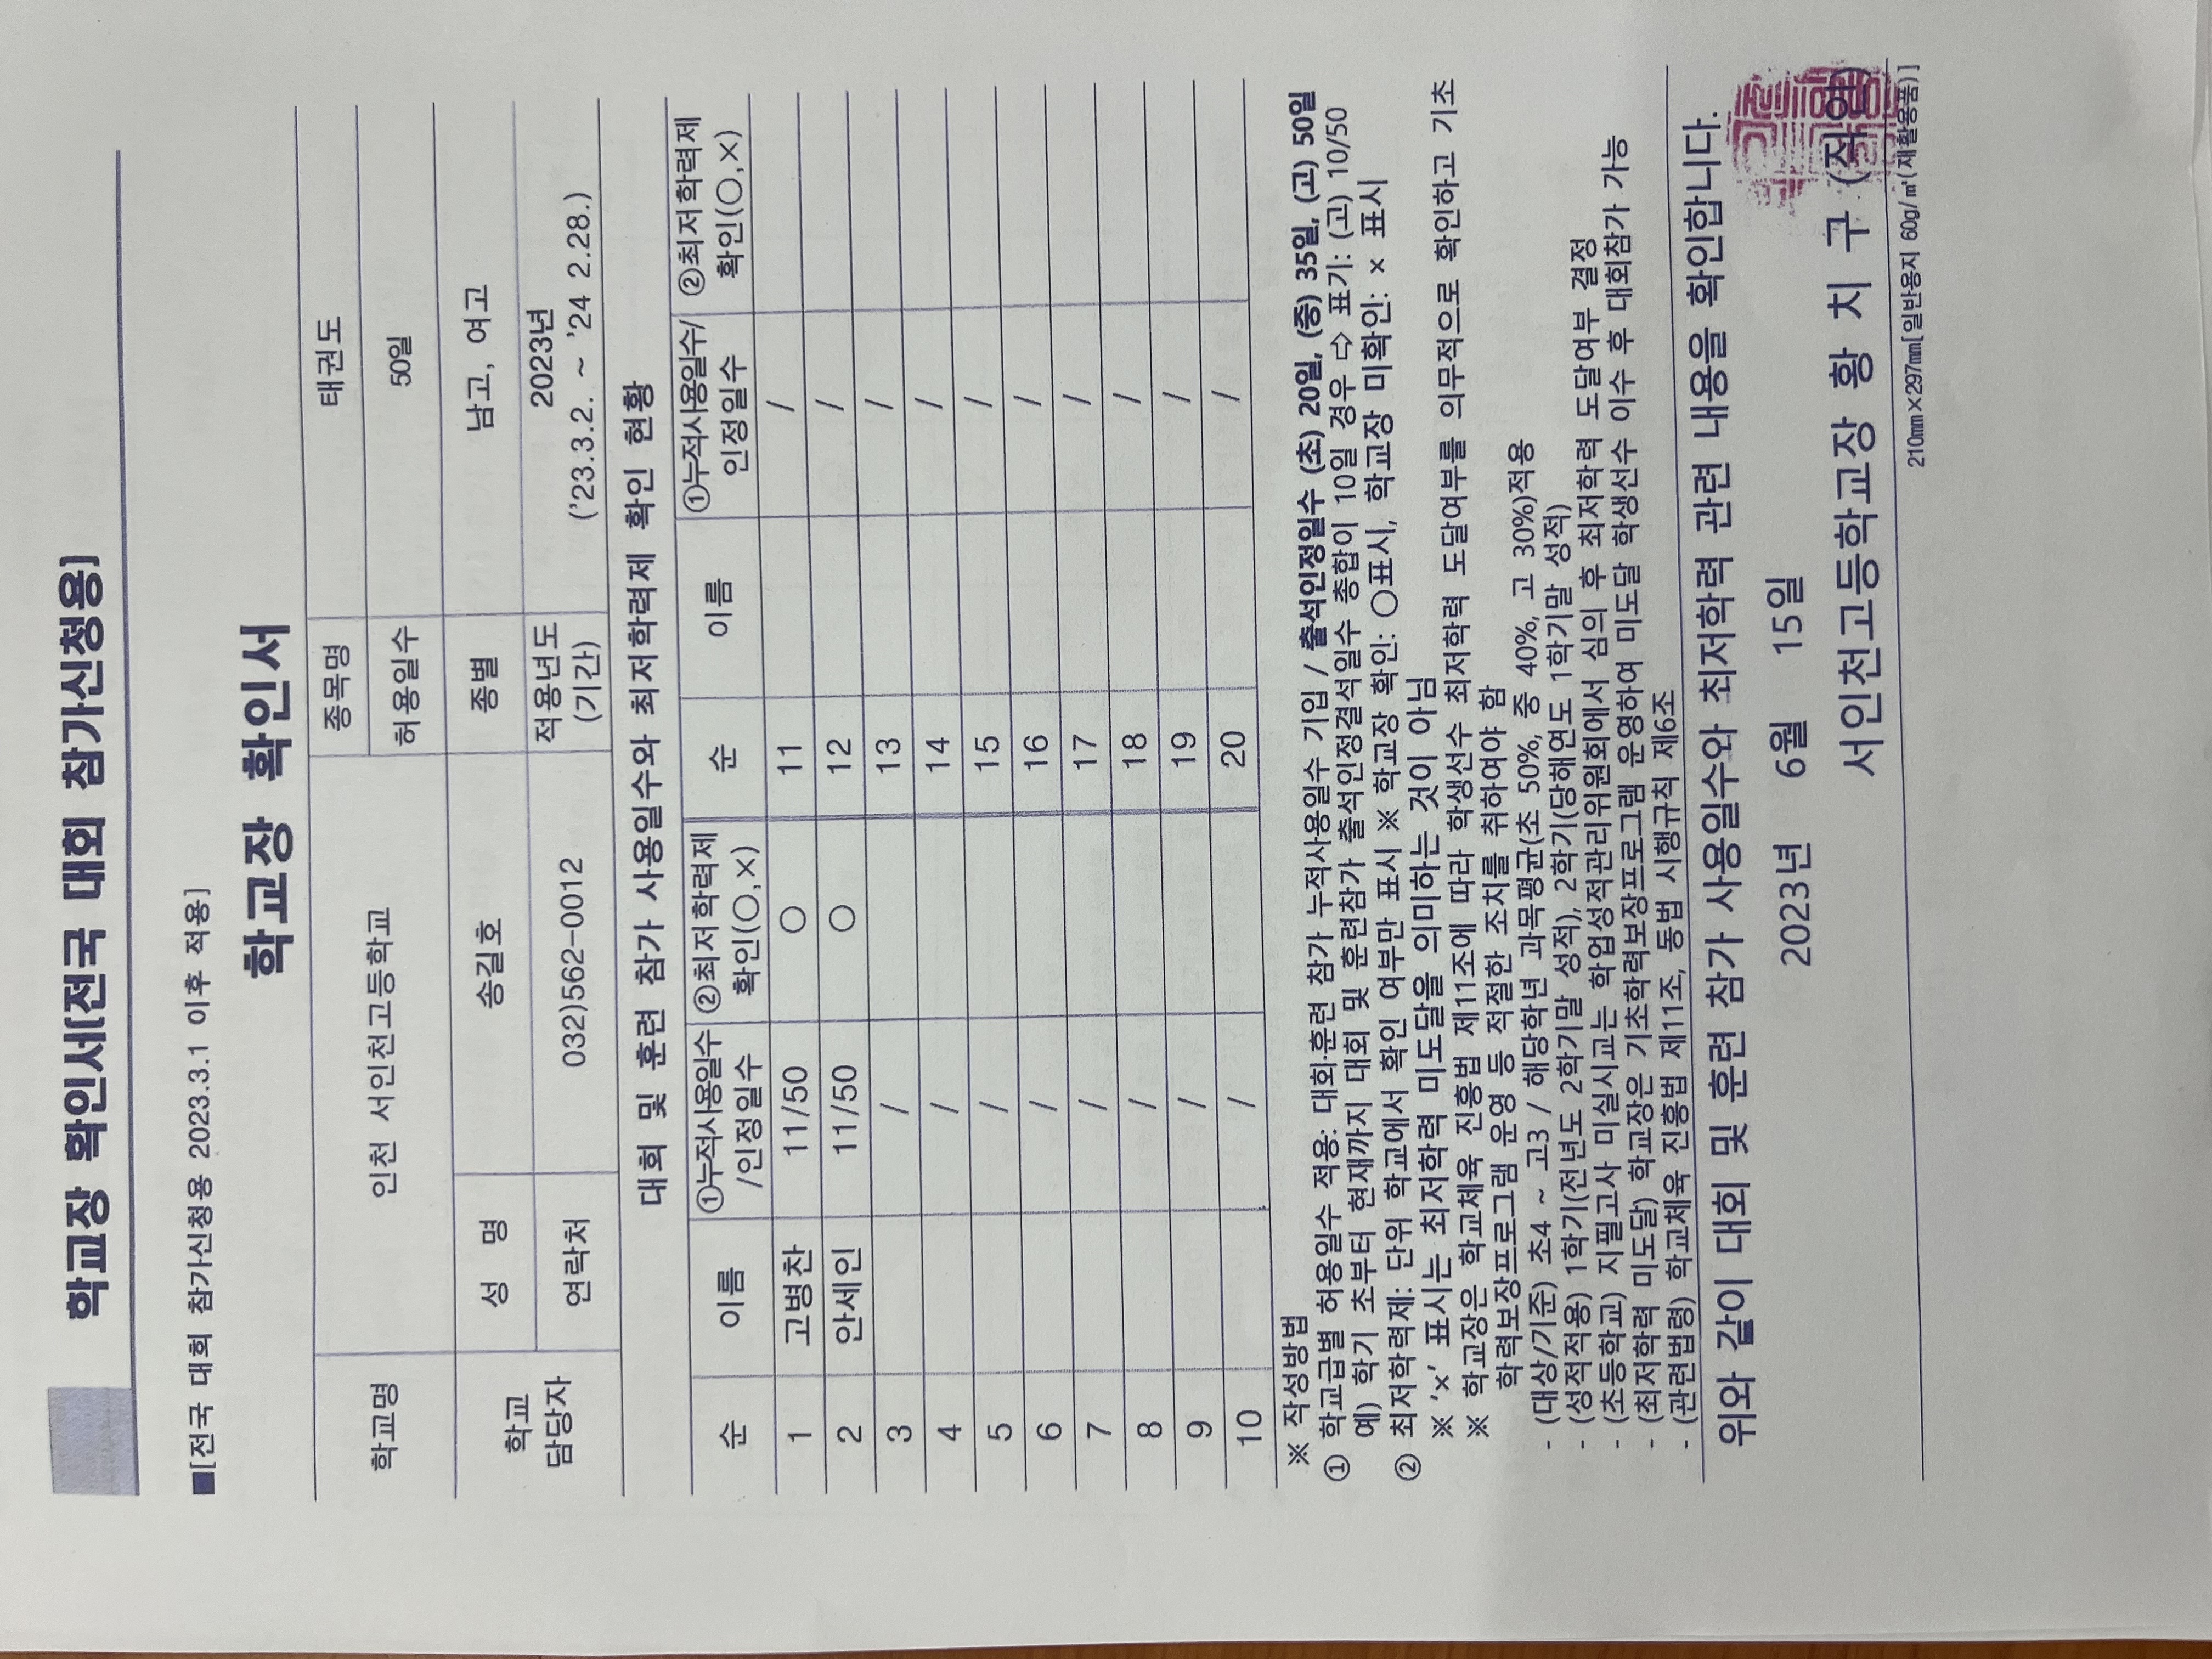 학교장 확인서[전국 대회 참가신청용]
■[전국 대회 참가신청용 2023.3.1 이후 적용]
학교장 확인서
학교명 인천 서인천고등학교 종목명 태권도
허용일수 50일
학교 담당자 성 명 송길호 종별 남고, 여고
연락처 032)562-0012 적용년도 (기간) 2023년 ('23.3.2. ~ '24 2.28.)
대회 및 훈련 참가 사용일수와 최저학력제 확인 현황
순 이름 ①누적사용일수 /인정일수 ②최저학력제 확인(○,×) 순 이름 ①누적사용일수/ 인정일수 ②최저학력제 확인(○,×)
1 고병찬 11/50 ○ 11 /
2 안세인 11/50 ○ 12 /
3 / 13 /
4 / 14 /
5 / 15 /
6 / 16 /
7 / 17 /
8 / 18 /
9 / 19 /
10 / 20 /
※ 작성방법
① 학교급별 허용일수 적용: 대회·훈련 참가 누적사용일수 기입 / 출석인정일수 (초) 20일, (중) 35일, (고) 50일
예) 학기 초부터 현재까지 대회 및 훈련참가 출석인정결석일수 총합이 10일 경우 ⇨ 표기: (고) 10/50
② 최저학력제: 단위 학교에서 확인 여부만 표시 ※ 학교장 확인: ○표시, 학교장 미확인: × 표시
※ '×' 표시는 최저학력 미도달을 의미하는 것이 아님
※ 학교장은 학교체육 진흥법 제11조에 따라 학생선수 최저학력 도달여부를 의무적으로 확인하고 기초
학력보장프로그램 운영 등 적절한 조치를 취하여야 함
- (대상/기준) 초4 ~ 고3 / 해당학년 과목평균(초 50%, 중 40%, 고 30%)적용
- (성적적용) 1학기(전년도 2학기말 성적), 2학기(당해연도 1학기말 성적)
- (초등학교) 지필고사 미실시교는 학업성적관리위원회에서 심의 후 최저학력 도달여부 결정
- (최저학력 미도달) 학교장은 기초학력보장프로그램 운영하여 미도달 학생선수 이수 후 대회참가 가능
- (관련법령) 학교체육 진흥법 제11조, 동법 시행규칙 제6조
위와 같이 대회 및 훈련 참가 사용일수와 최저학력 관련 내용을 확인합니다.
2023년 6월 15일
서인천고등학교장 황 치 구 (직인)
210㎜×297㎜[일반용지 60g/㎡(재활용품)]